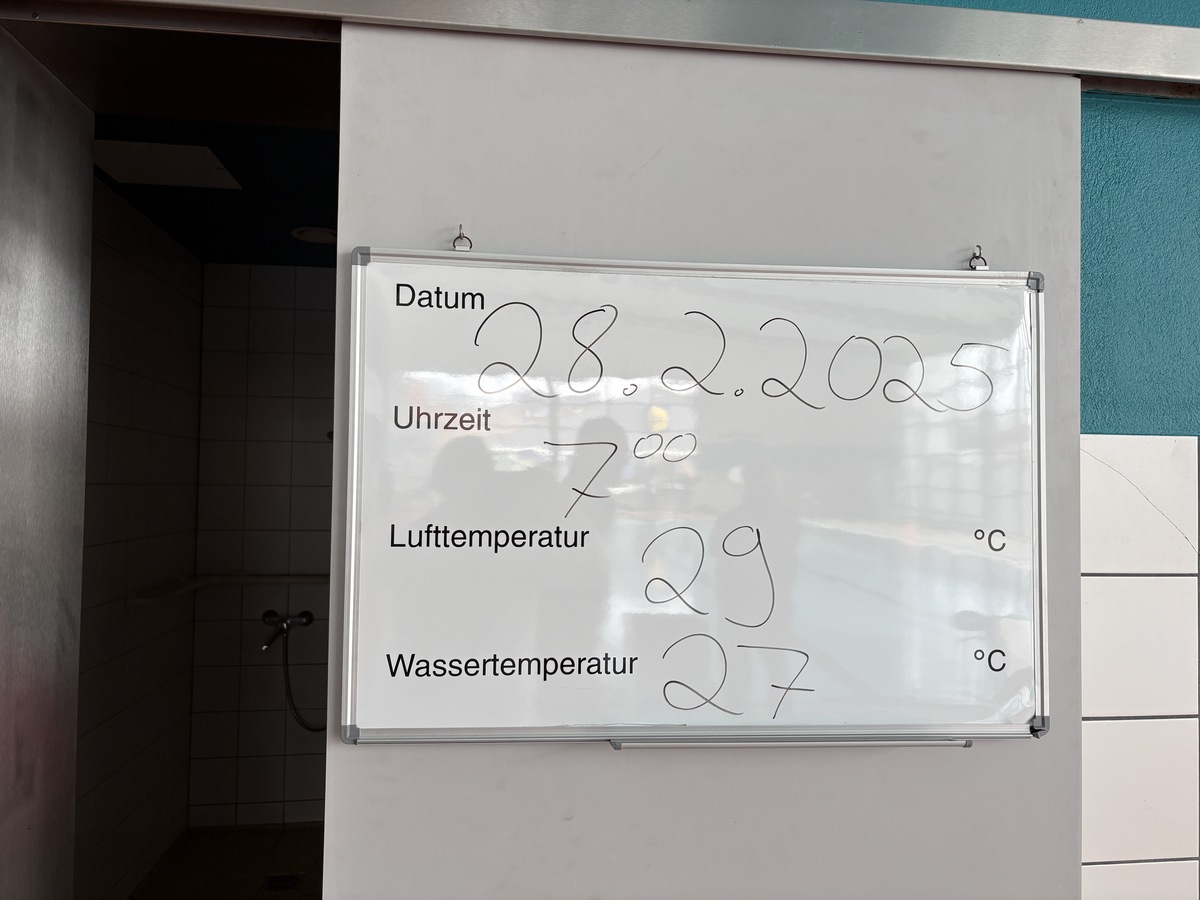 Datum 28.2.2025
Uhrzeit 7⁰⁰
Lufttemperatur 29 °C
Wassertemperatur 27 °C